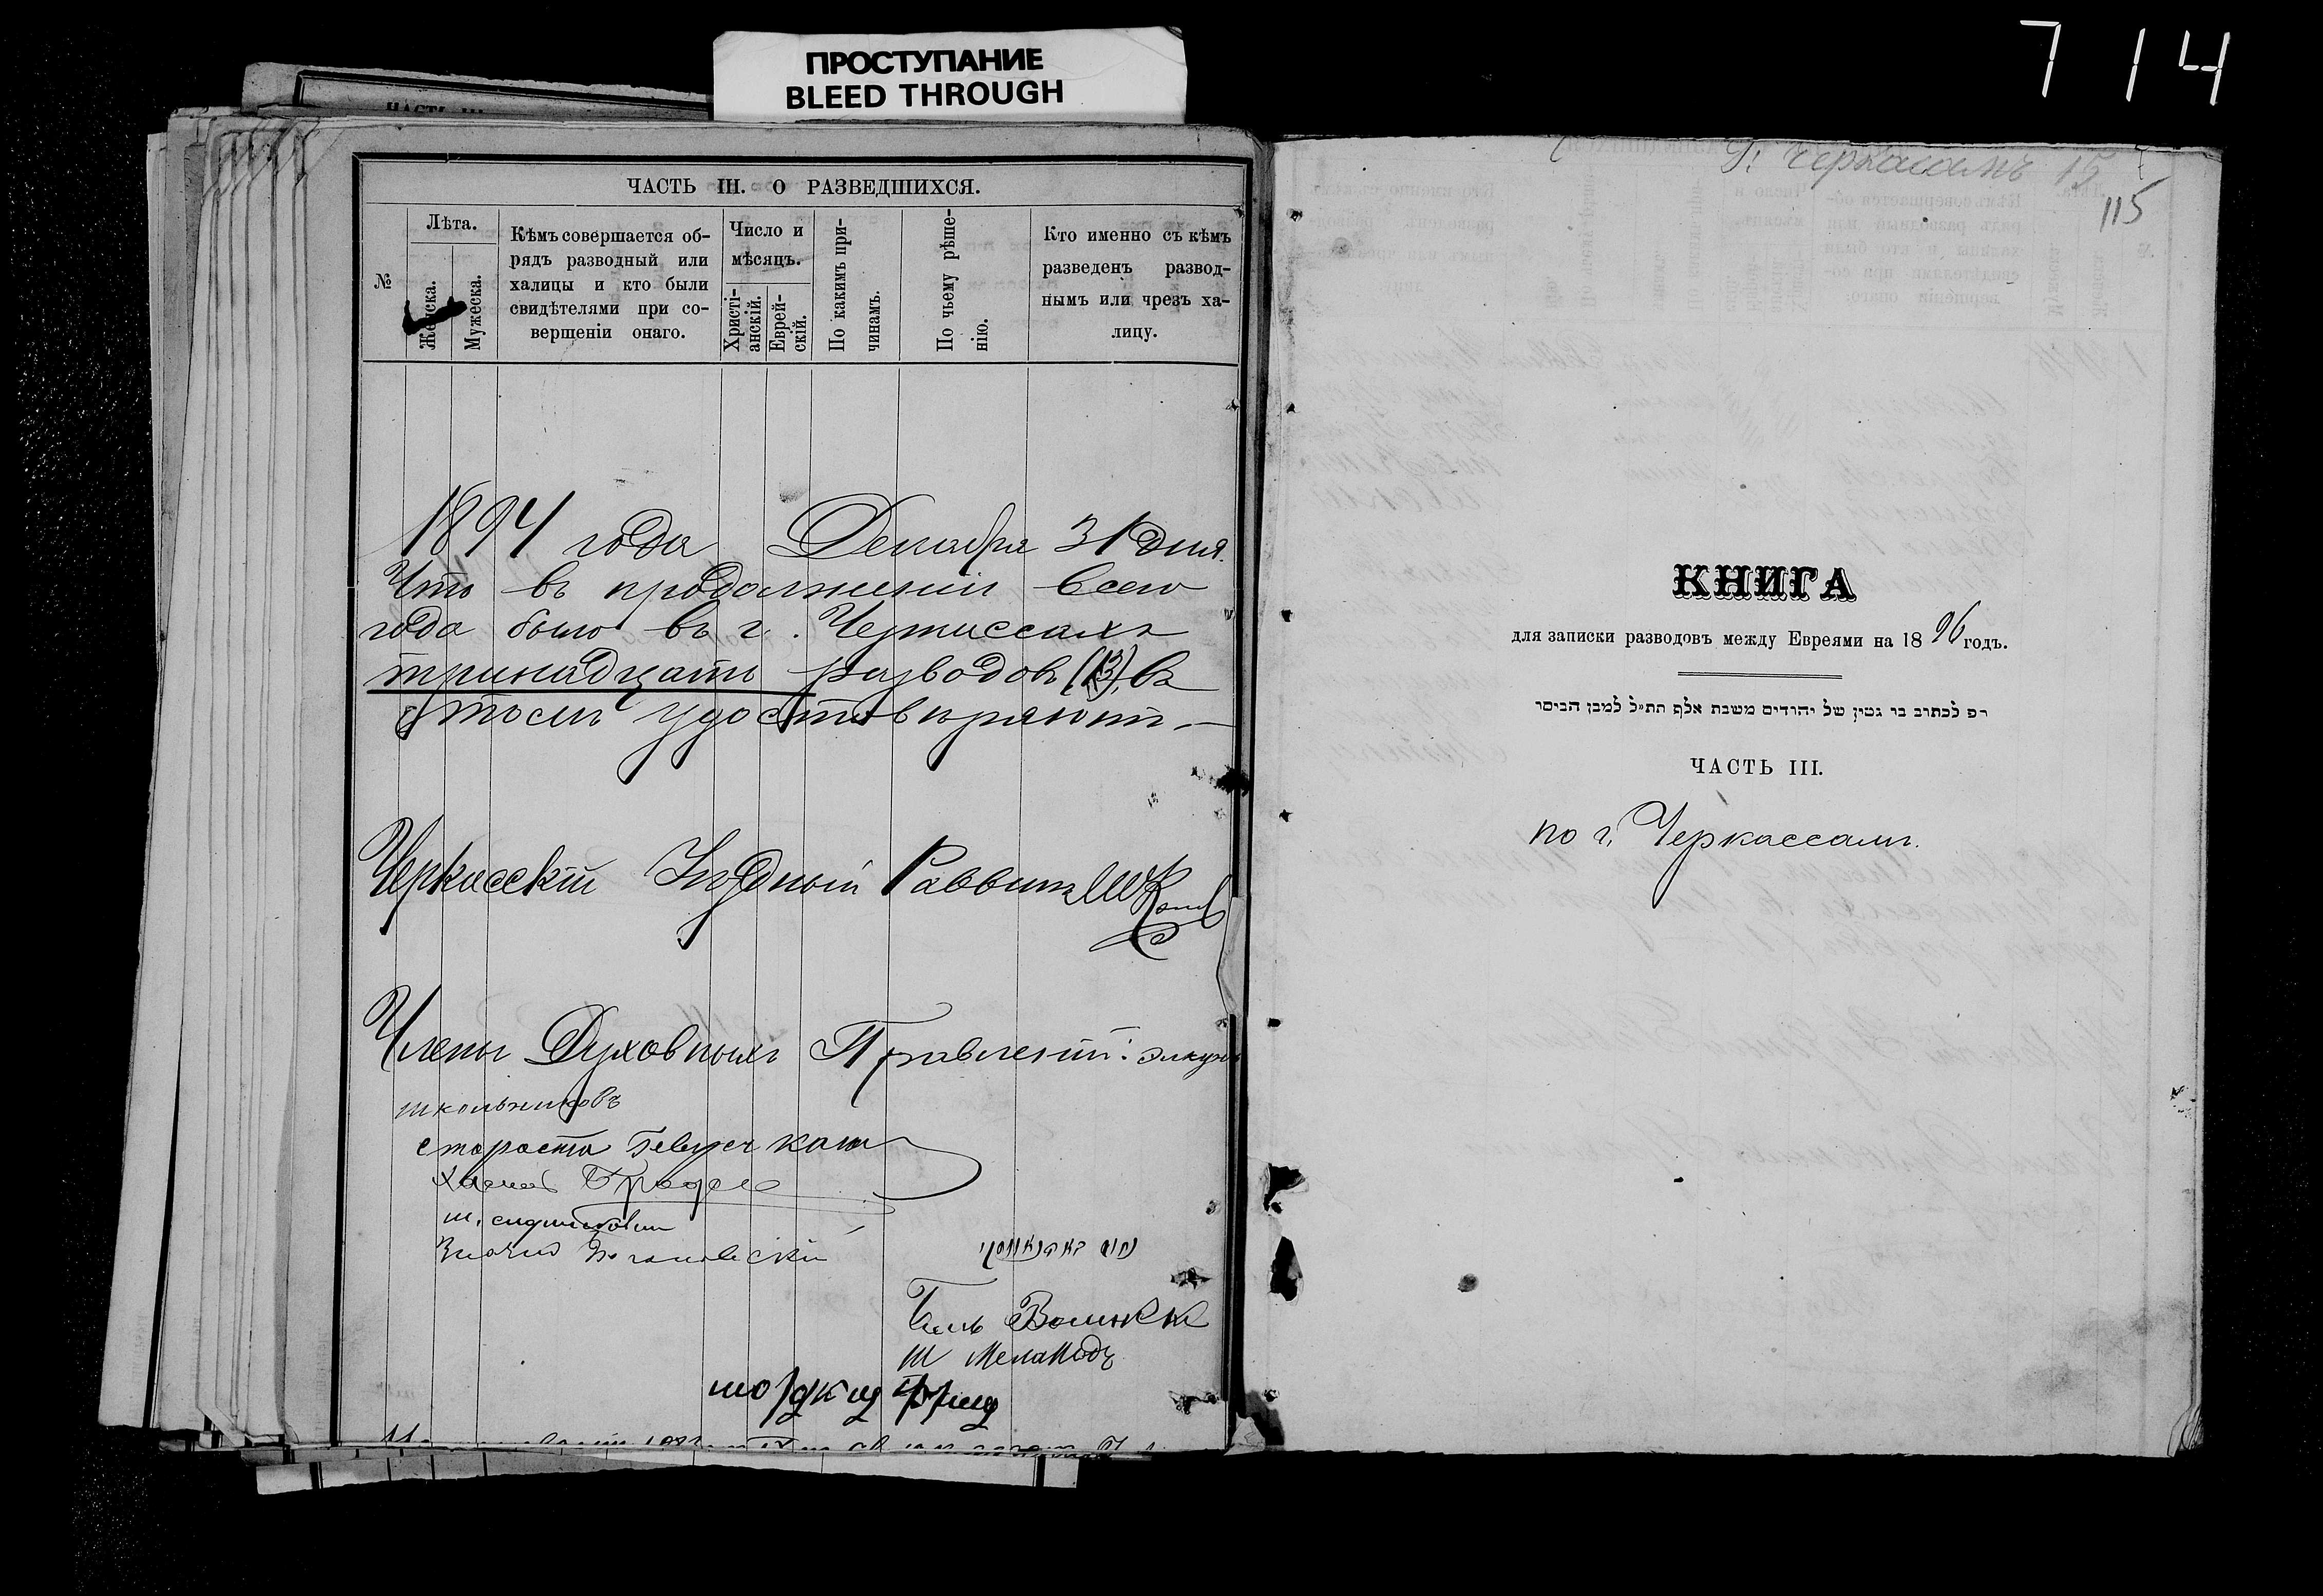 ПРОСТУПАНИЕ
BLEED THROUGH
7 14
ЧАСТЬ III. О РАЗВЕДШИХСЯ.
№
Лѣта.
Женска.
Мужеска.
Кѣмъ совершается об-
рядъ разводный или
халицы и кто были
свидѣтелями при со-
вершеніи онаго.
Число и
мѣсяцъ.
Христі-
анскій.
Еврей-
скій.
По какимъ при-
чинамъ.
По чьему рѣше-
нію.
Кто именно съ кѣмъ
разведенъ развод-
нымъ или чрезъ ха-
лицу.
1894 года Декабря 31 дня
Что въ продолженіи всего
года было въ г. Черкассахъ
тринадцать разводовъ (13), въ
томъ удостовѣряютъ.—
Черкасскій Уѣздный Раввинъ
Члены Духовныхъ Правленій:
школьниковъ
староста
Ш Меламедъ
г. Черкассамъ 15
115
КНИГА
для записки разводовъ между Евреями на 1896 годъ.
רפ לכתוב בו גטין של יהודים משבת אלף תת״ל למבן הביסר
ЧАСТЬ III.
по г. Черкассамъ.